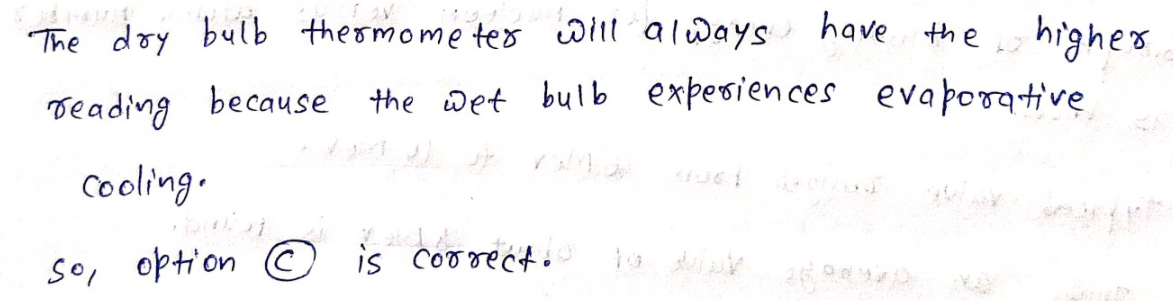 The dry bulb thermometer will always have the higher
reading because the wet bulb experiences evaporative
cooling.
So, option (C) is correct.